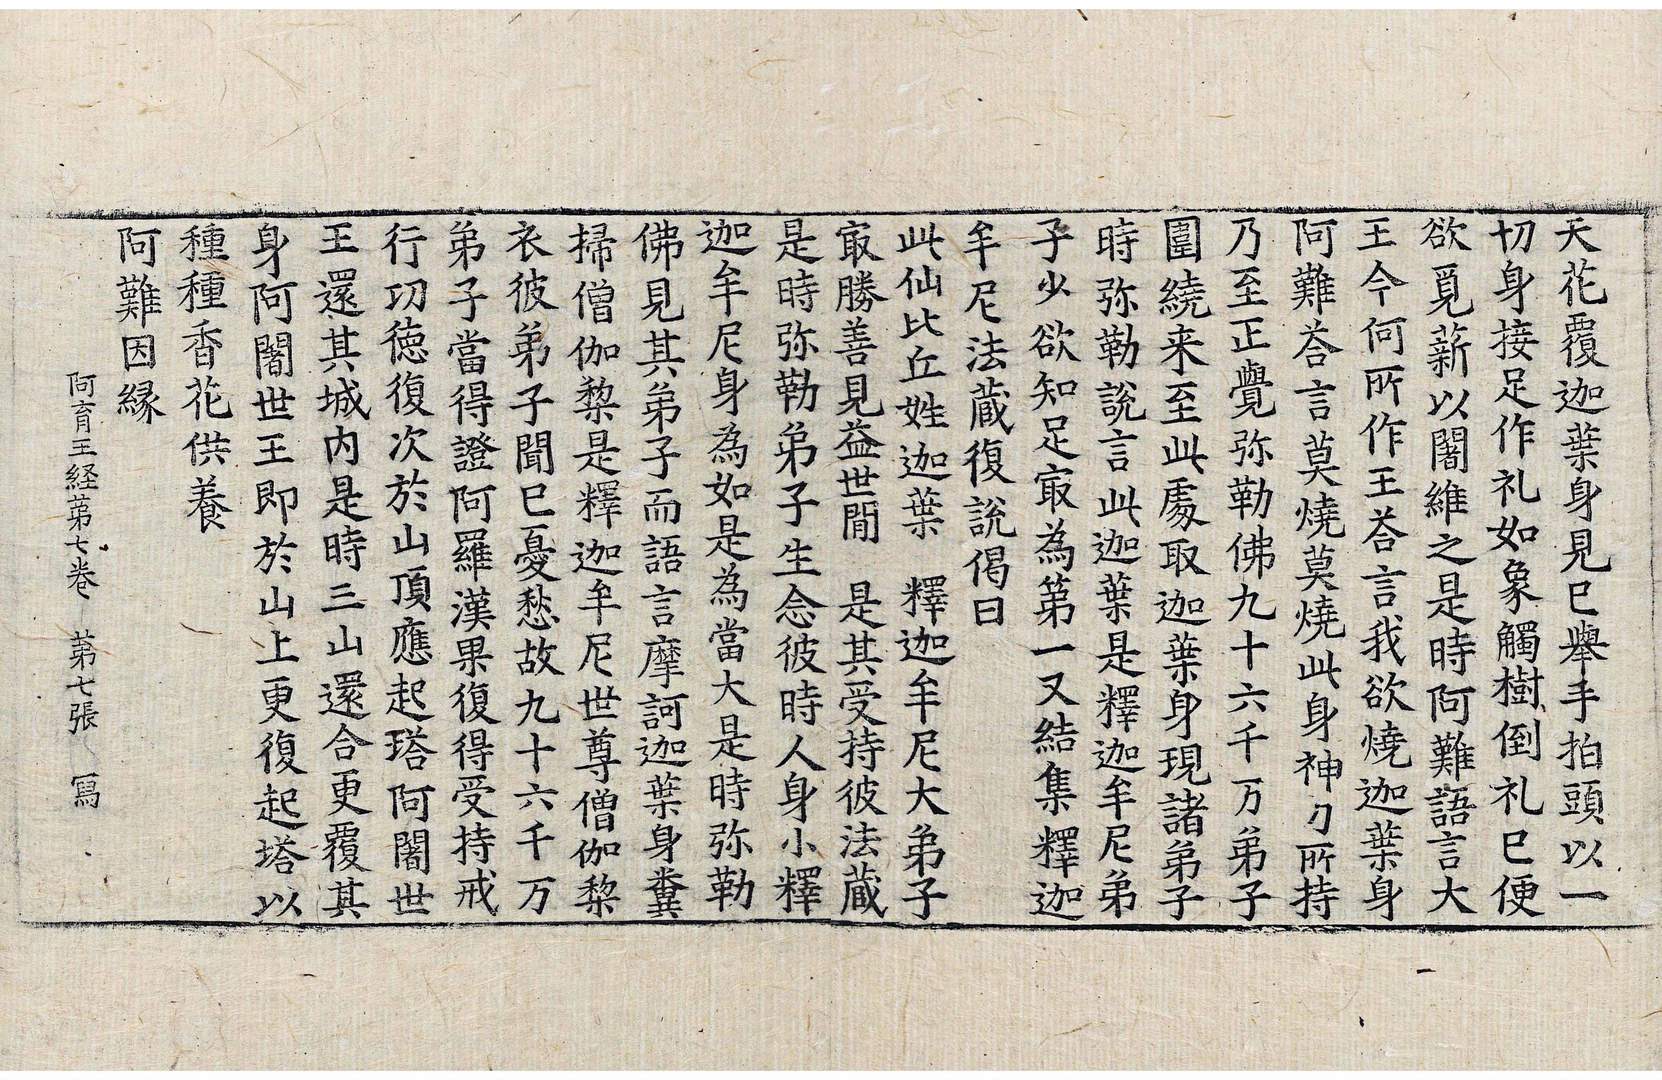 天花覆迦葉身見已舉手拍頭以一
切身接足作礼如象觸樹倒礼已便
欲覓薪以闍維之是時阿難語言大
王今何所作王荅言我欲燒迦葉身
阿難荅言莫燒莫燒此身神力所持
乃至正覺弥勒佛九十六千万弟子
圍繞来至此處取迦葉身現諸弟子
時弥勒說言此迦葉是釋迦牟尼弟
子少欲知足㝡為第一又結集釋迦
牟尼法蔵復說偈曰
此仙比丘姓迦葉　釋迦牟尼大弟子
㝡勝善見益世間　是其受持彼法蔵
是時弥勒弟子生念彼時人身小釋
迦牟尼身為如是為當大是時弥勒
佛見其弟子而語言摩訶迦葉身糞
掃僧伽梨是釋迦牟尼世尊僧伽梨
衣彼弟子聞已憂愁故九十六千万
弟子當得證阿羅漢果復得受持戒
行功徳復次於山頂應起塔阿闍世
王還其城内是時三山還合更覆其
身阿闍世王即於山上更復起塔以
種種香花供養
阿難因縁
阿育王経第七卷　第七張　冩